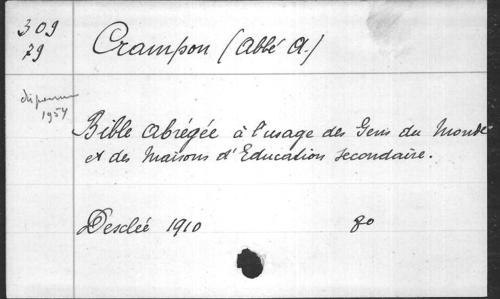 309
29
Crampon (Abbé A.)
1954
Bible Abrégée à l'usage des Gens du Monde
et des Maisons d'Education secondaire.
Desclée 1910 80